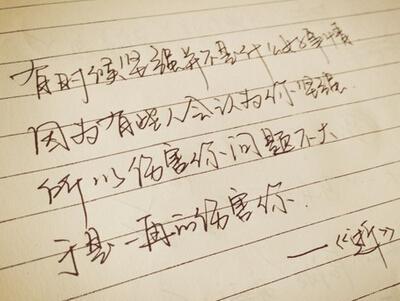 有时候坚强并不是什么好事情
因为有些人会认为你坚强
所以伤害你问题不大
于是一再的伤害你